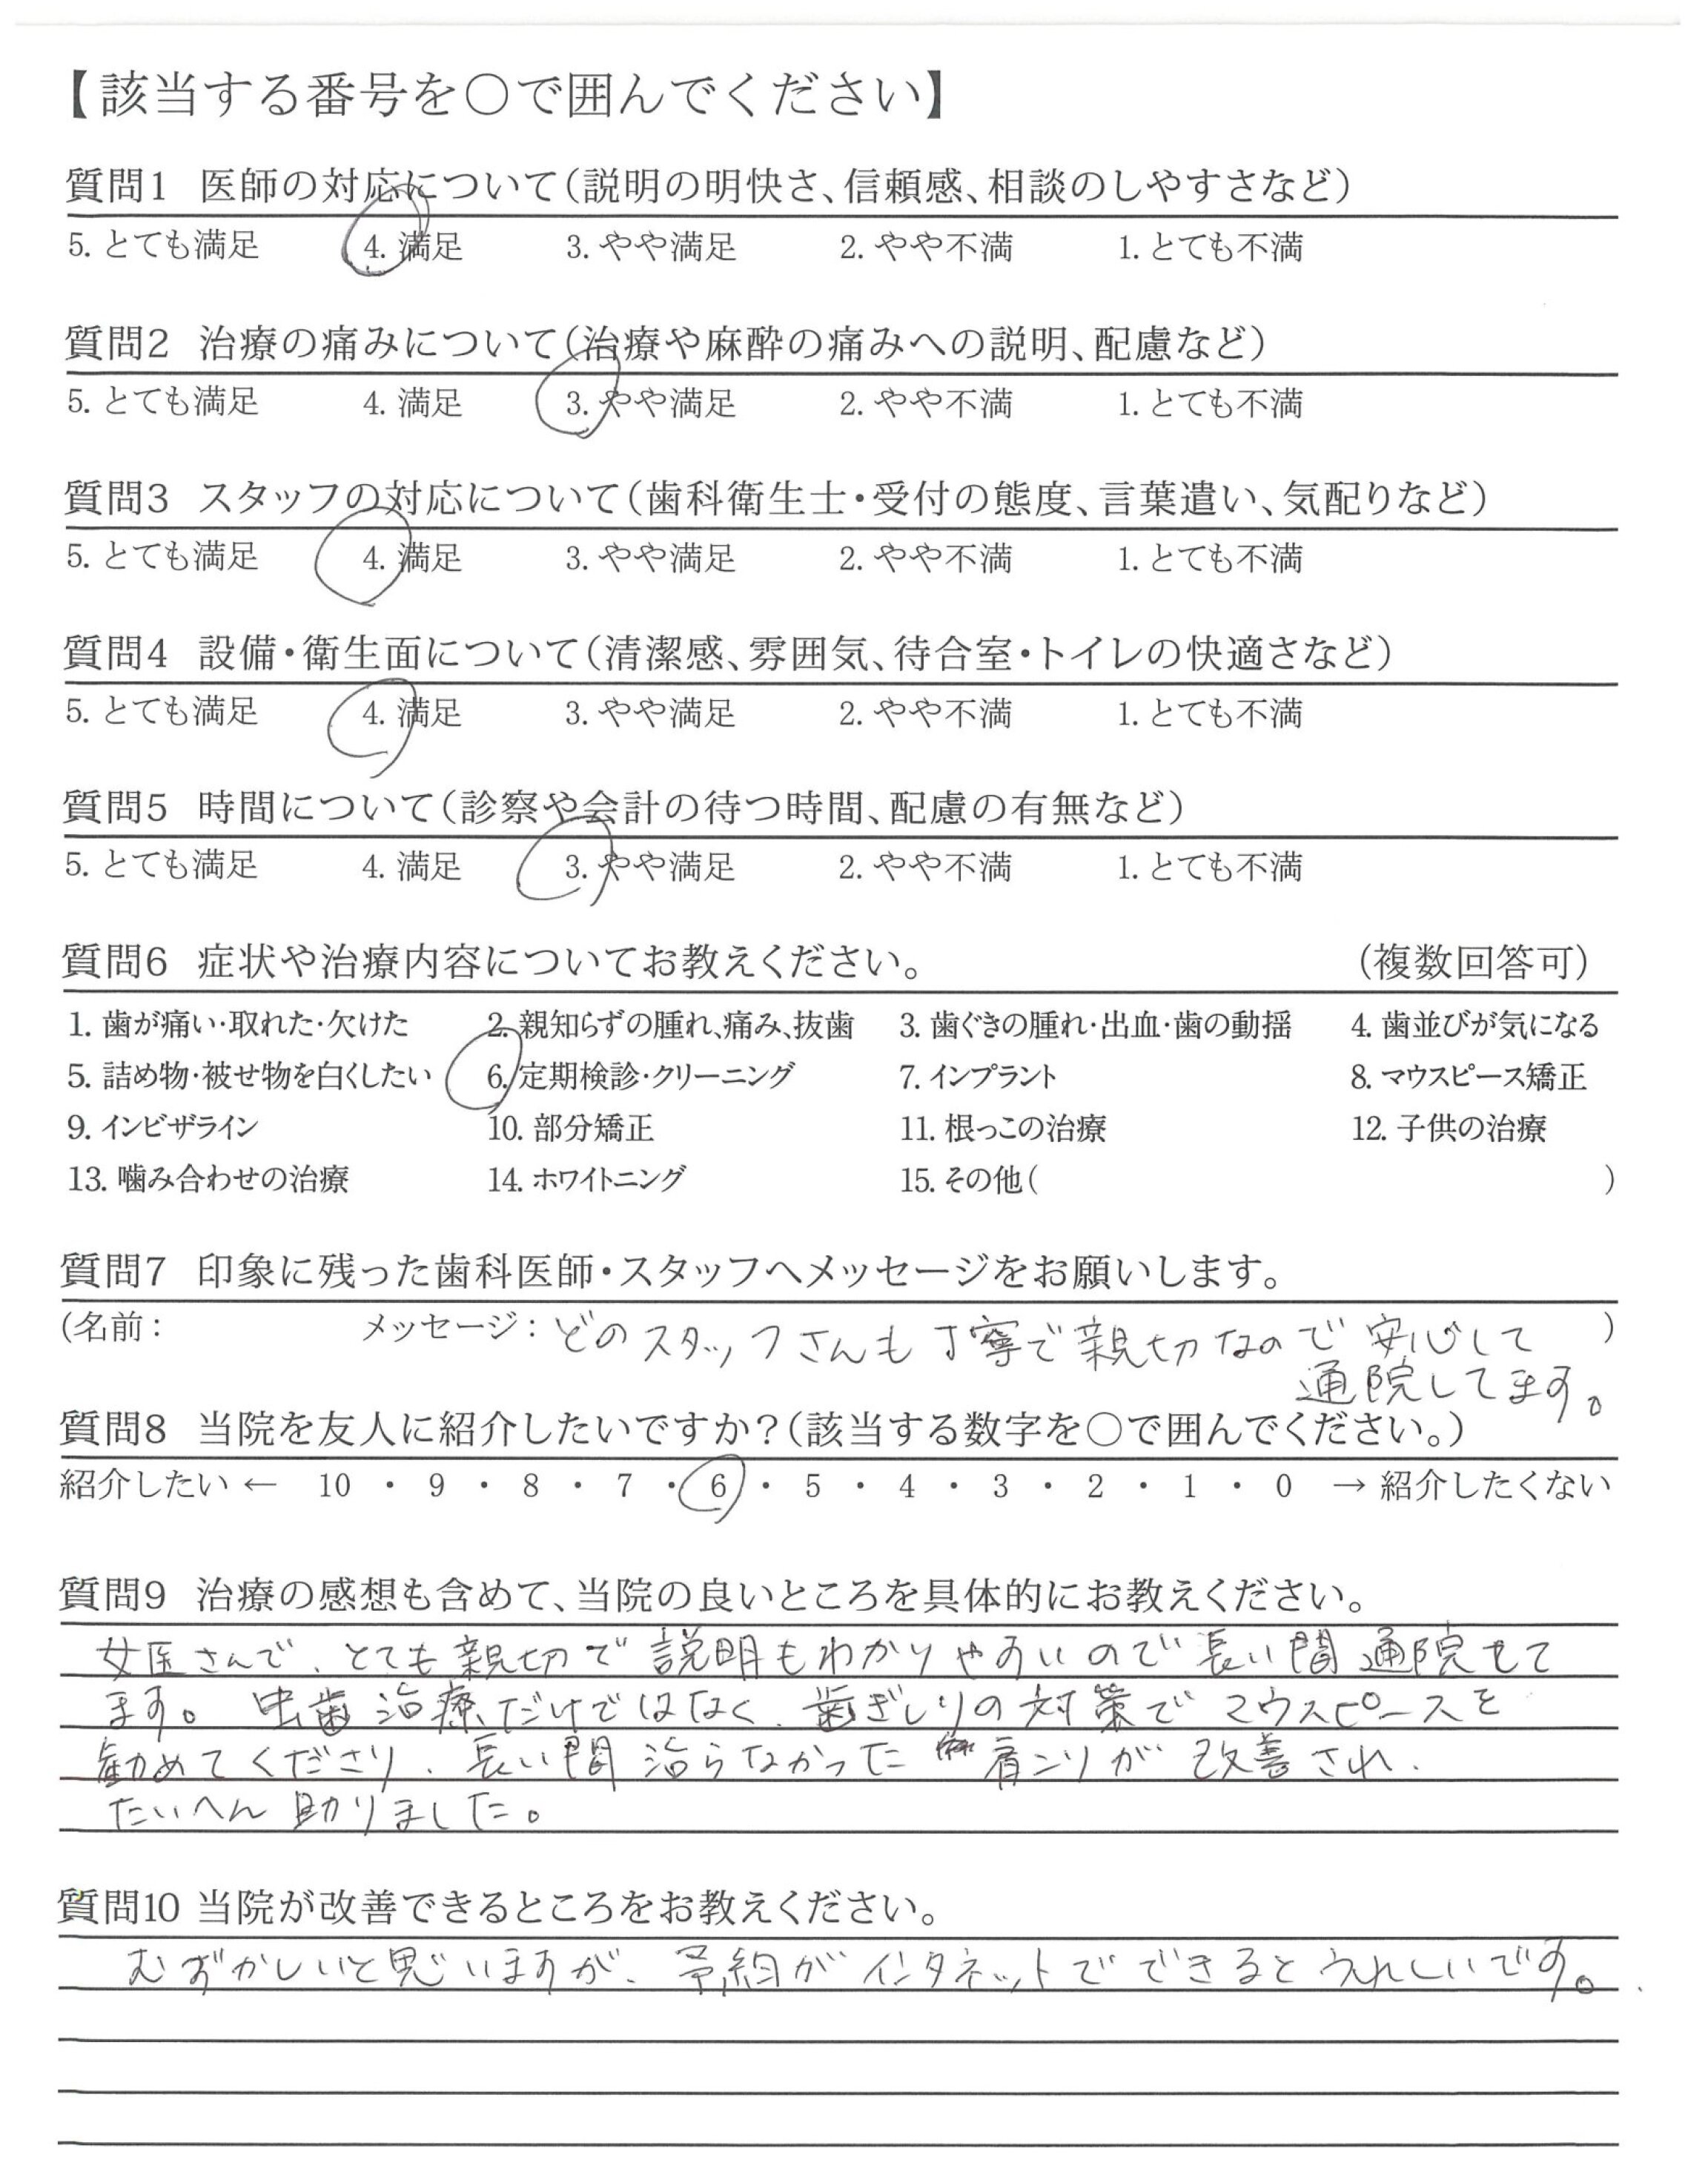 【該当する番号を○で囲んでください】
質問1 医師の対応について（説明の明快さ、信頼感、相談のしやすさなど）
5. とても満足 4. 満足 3. やや満足 2. やや不満 1. とても不満
質問2 治療の痛みについて（治療や麻酔の痛みへの説明、配慮など）
5. とても満足 4. 満足 3. やや満足 2. やや不満 1. とても不満
質問3 スタッフの対応について（歯科衛生士・受付の態度、言葉遣い、気配りなど）
5. とても満足 4. 満足 3. やや満足 2. やや不満 1. とても不満
質問4 設備・衛生面について（清潔感、雰囲気、待合室・トイレの快適さなど）
5. とても満足 4. 満足 3. やや満足 2. やや不満 1. とても不満
質問5 時間について（診察や会計の待つ時間、配慮の有無など）
5. とても満足 4. 満足 3. やや満足 2. やや不満 1. とても不満
質問6 症状や治療内容についてお教えください。 （複数回答可）
1. 歯が痛い・取れた・欠けた 2. 親知らずの腫れ、痛み、抜歯 3. 歯ぐきの腫れ・出血・歯の動揺 4. 歯並びが気になる
5. 詰め物・被せ物を白くしたい 6. 定期検診・クリーニング 7. インプラント 8. マウスピース矯正
9. インビザライン 10. 部分矯正 11. 根っこの治療 12. 子供の治療
13. 噛み合わせの治療 14. ホワイトニング 15. その他（ ）
質問7 印象に残った歯科医師・スタッフへメッセージをお願いします。
（名前： メッセージ：どのスタッフさんも丁寧で親切なので安心して ）
通院してます。
質問8 当院を友人に紹介したいですか？（該当する数字を○で囲んでください。）
紹介したい ← 10 ・ 9 ・ 8 ・ 7 ・ 6 ・ 5 ・ 4 ・ 3 ・ 2 ・ 1 ・ 0 → 紹介したくない
質問9 治療の感想も含めて、当院の良いところを具体的にお教えください。
女医さんで、とても親切で説明もわかりやすいので長い間通院して
ます。虫歯治療だけではなく、歯ぎしりの対策でマウスピースを
勧めてくださり、長い間治らなかった肩コリが改善され、
たいへん助りました。
質問10 当院が改善できるところをお教えください。
むずかしいと思いますが、予約がインタネットでできるとうれしいです。